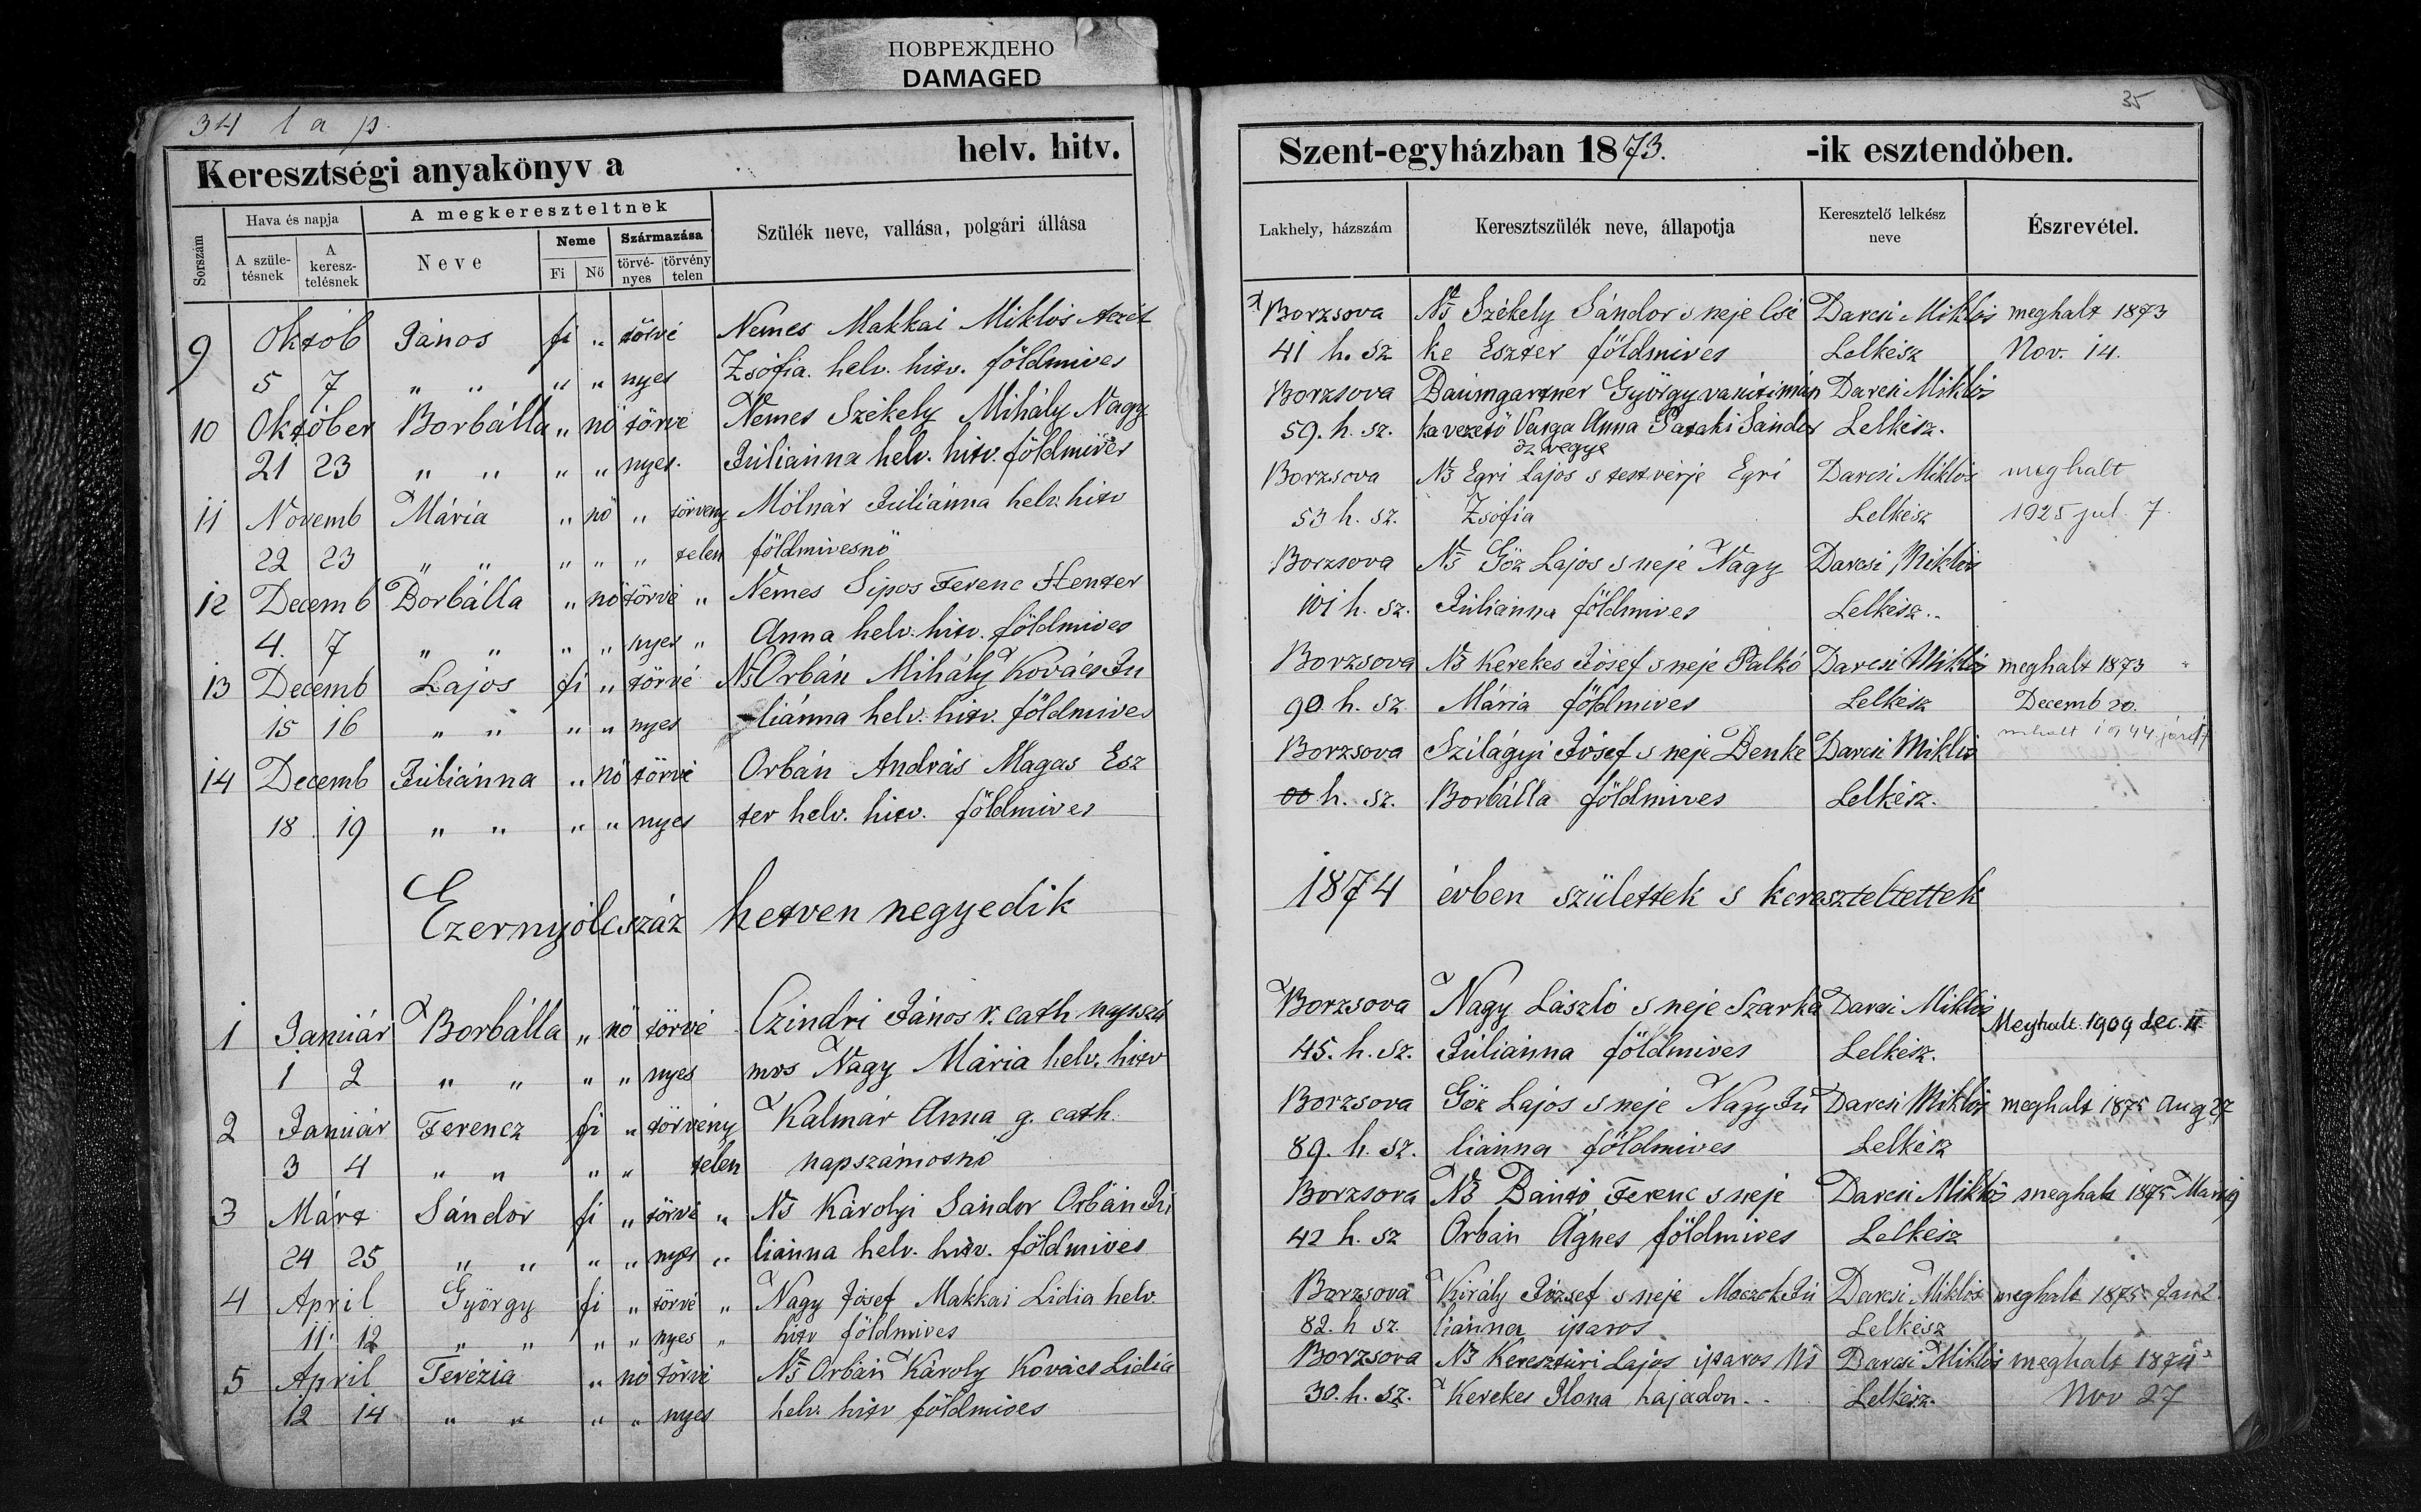 ПОВРЕЖДЕНО
DAMAGED
34 lap.
Keresztségi anyakönyv a helv. hitv.
Sorszám
Hava és napja
A megkereszteltnek
Szülék neve, vallása, polgári állása
A szüle-tésnek
A keresz-telésnek
Neve
Neme
Származása
Fi
Nő
törvé-nyes
törvény telen
9 Októb János fi " törvé Nemes Makkai Miklós
5 7 " " " " nyes Zsófia. helv. hitv. földmives
10 Október Borbálla " nö törvé Nemes Székely Mihály Nagy
21 23 " " " " nyes. Juliánna helv. hitv. földmives
11 Novemb Mária " nö " törveny Mólnár Juliánna helv. hitv
22 23 " " " " " telen földmivesnö
12 Decemb Borbálla " nö törvé " Nemes Sipos Ferenc Henter
4. 7 " " " " nyes " Anna helv. hitv. földmives
13 Decemb Lajos fi " törvé Ns Orbán Mihály Kovács Ju
15 16 " " " " nyes liánna helv. hitv. földmives
14 Decemb Juliánna " nö törvé Orbán András Magas Esz
18 19 " " " " nyes ter helv. hitv. földmives
Ezernyólcszáz hetven negyedik
1 Január Borbálla " nö törvé Czindri János r. cath napszá
1 2 " " " " nyes mos Nagy Mária helv. hitv
2 Január Ferencz fi " törvény Kalmár Anna g. cath.
3 4 " " " " telen napszámosnö
3 Márt Sándor fi " törvé " Ns Károlyi Sándor Orbán Ju
24 25 " " " " nyes " liánna helv. hitv. földmives
4 April György fi " törvé " Nagy Josef Makkai Lidia helv.
11 12 " " " " nyes " hitv földmives
5 April Terézia " nö törvé Ns Orbán Károly Kovács Lidia
12 14 " " " " nyes helv. hitv földmives
35
Szent-egyházban 1873. -ik esztendőben.
Lakhely, házszám
Keresztszülék neve, állapotja
Keresztelő lelkész neve
Észrevétel.
Borzsova Ns Székely Sándor s neje Cse Darcsi Miklós meghalt 1873
41 h. sz ke Eszter földmives Lelkész Nov. 14.
Borzsova Baumgartner György Darcsi Miklós
59. h. sz. ka vezetö Varga Anna Pataki Sándor Lelkész.
özvegye
Borzsova Ns Egri Lajos s testvérje Egri Darcsi Miklós meghalt
53 h. sz. Zsófia Lelkész 1925 jul. 7.
Borzsova Ns Göz Lajos s neje Nagy Darcsi Miklós
101 h. sz. Juliánna földmives Lelkész..
Borzsova Ns Kerekes Jósef s neje Palkó Darcsi Miklós meghalt 1873
90. h. sz Mária földmives Lelkész Decemb 20.
Borzsova Szilágyi Jósef s neje Benke Darcsi Miklós 1944
h. sz. Borbálla földmives Lelkész.
1874 évben születtek s kereszteltettek
Borzsova Nagy László s neje Szarka Darcsi Miklós
Meghalt. 1909 dec.
45. h. sz. Juliánna földmives Lelkész.
Borzsova Göz Lajos s neje Nagy Ju Darcsi Miklós meghalt 1875 Aug 27
89. h. sz. liánna földmives Lelkész
Borzsova Ns Bántó Ferenc s neje Darcsi Miklós meghalt 1875
42 h. sz Orbán Ágnes földmives Lelkész
Borzsova Király József s neje Moczok Ju Darcsi Miklós meghalt 1875 Jan 2.
82. h sz. liánna iparos Lelkész
Borzsova Ns Kereszturi Lajos iparos Ns Darcsi Miklós meghalt
30. h. sz. Kerekes Ilona hajadon. Lelkész. Nov 27